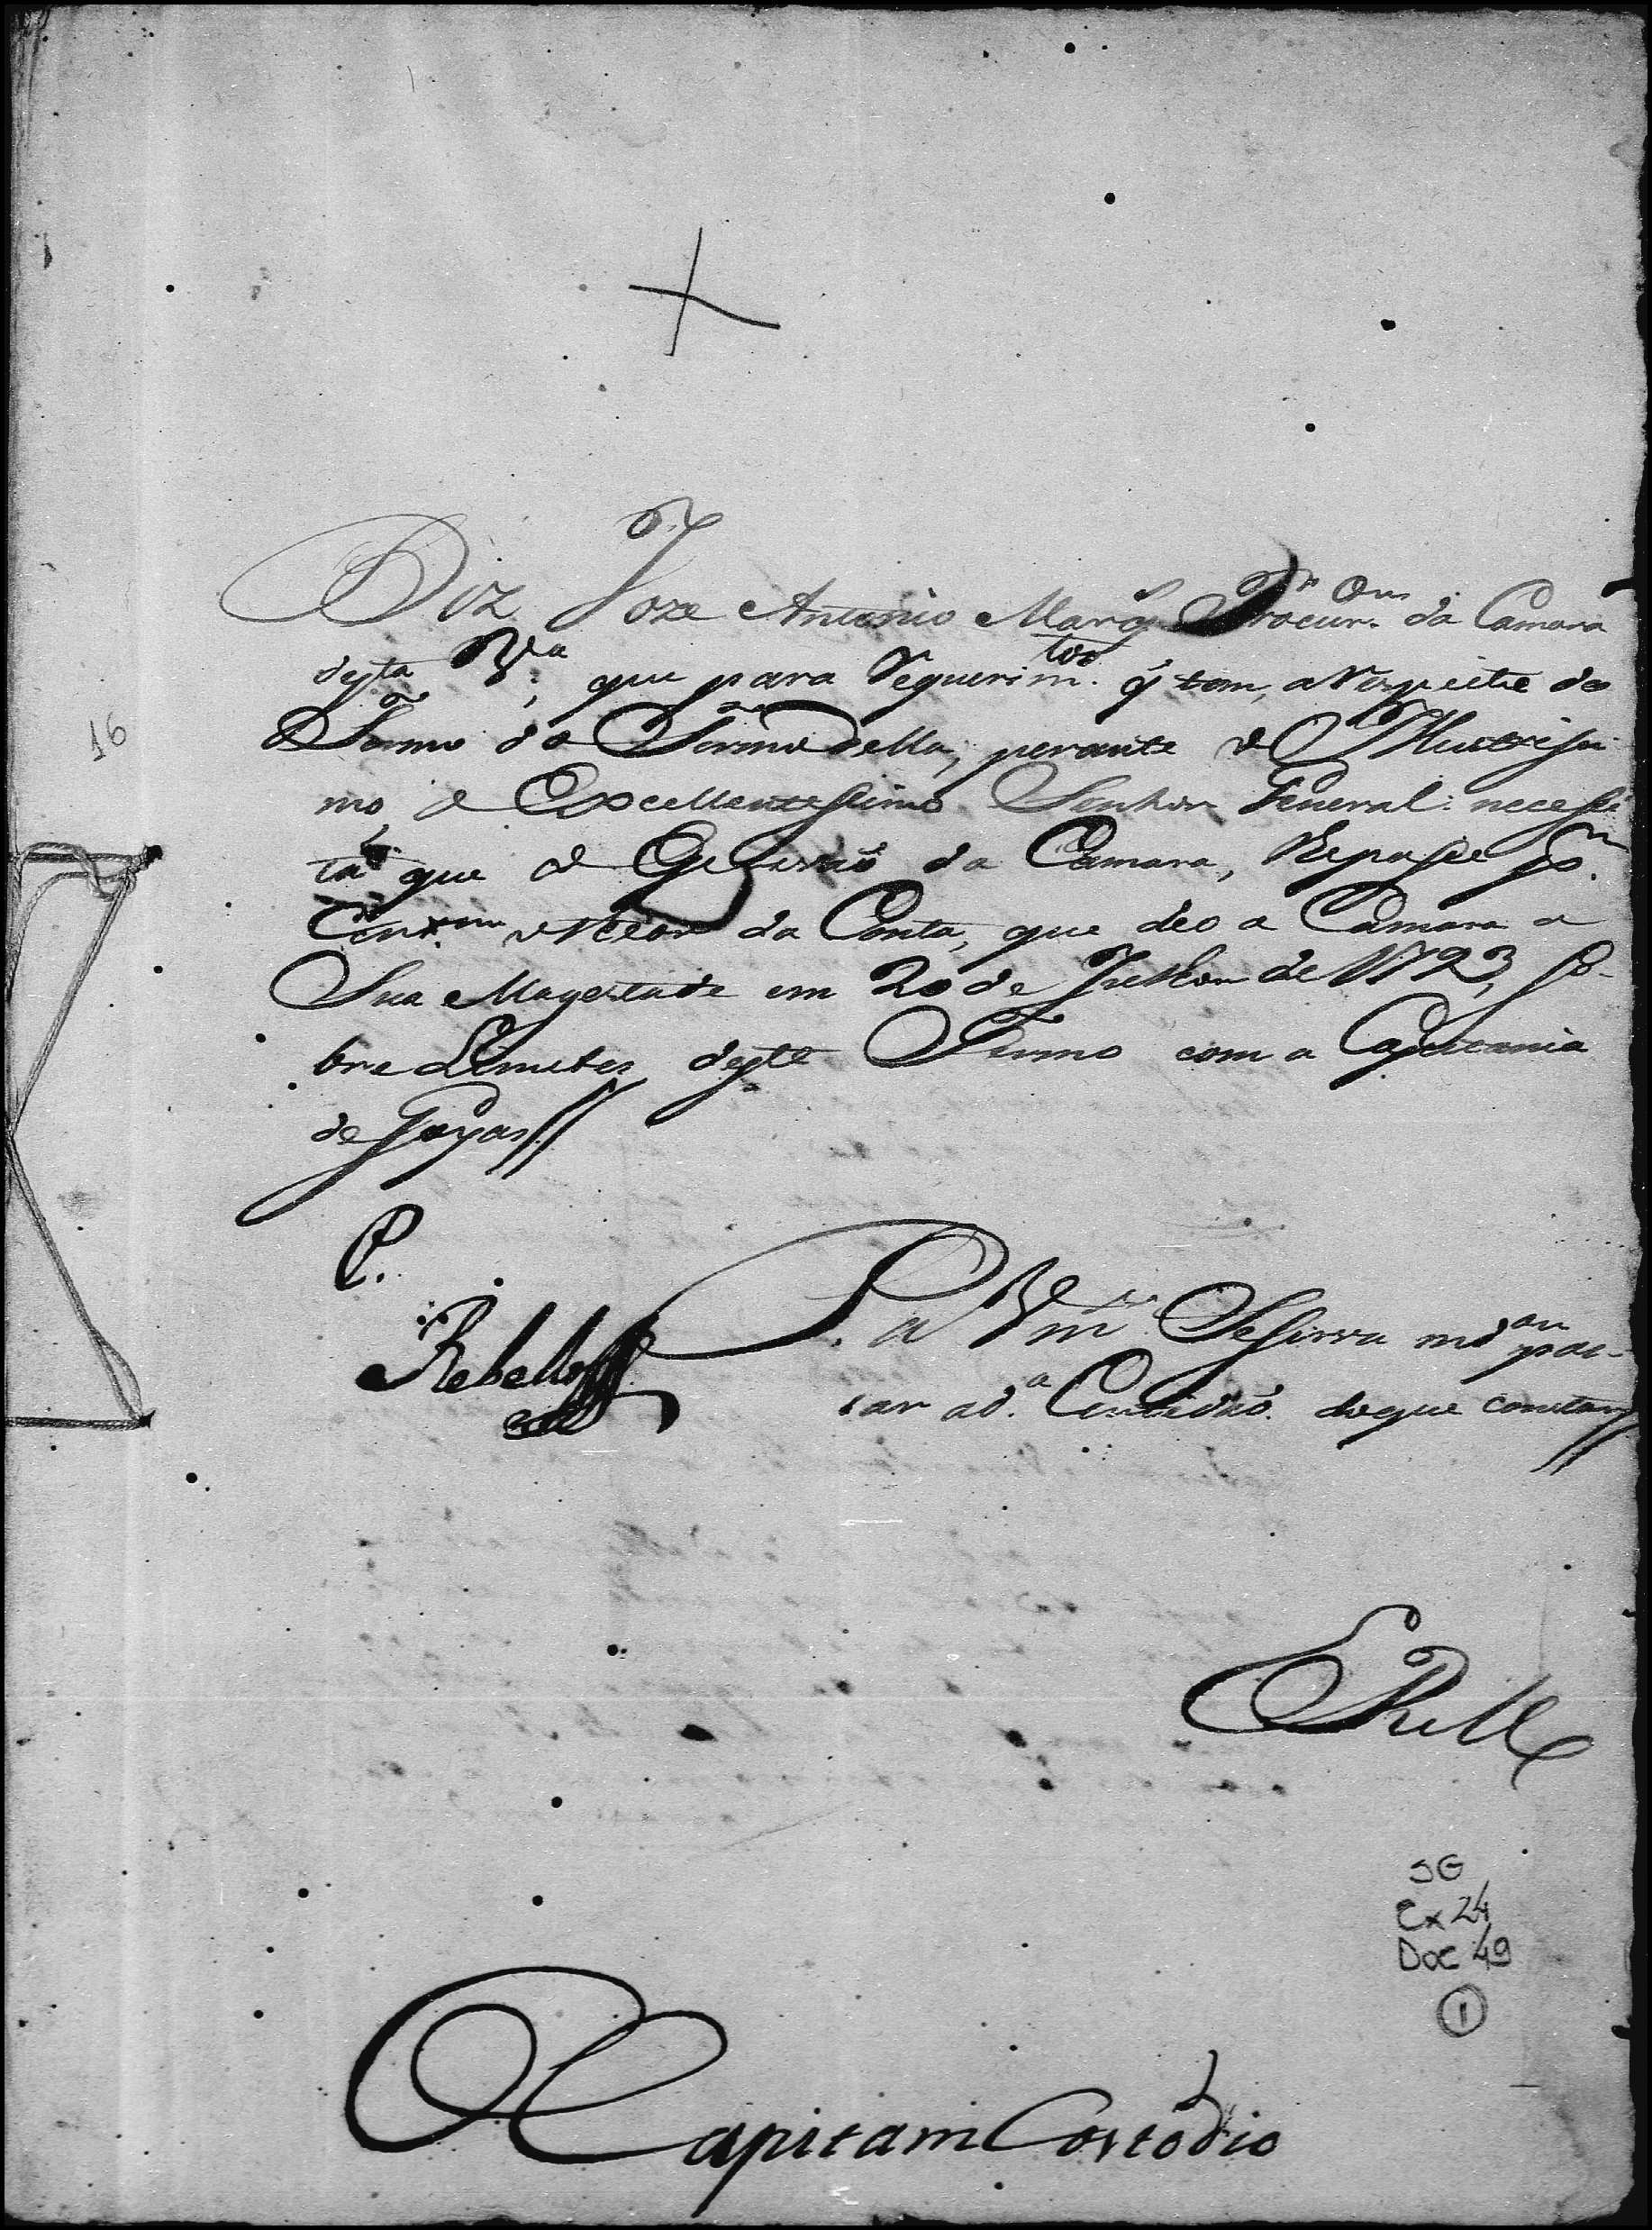 Diz Joze Antonio Marq.s Procur. da Camara
desta V.a, que para Requerim.tos q̃ tem, a Respeito do
Termo da della, perante o Illustrissi
mo, e Excellentissimo Senhor General necessi
ta que o Escrivaõ da Camara, lhe passe p.r
Certidam o theor da Conta, que deo a Camara a
Sua Magestade em 20 de Julho de 1793, So-
bre Limites deste Termo com a Capitania
de Goyas //
P.
Rebello
P. a Vm.ce Se Sirva md.ar pas-
sar a d.a Certidaõ do que constar //
E R M.ce
16
SG
Cx 24
Doc 49
1
Capitam Costodio